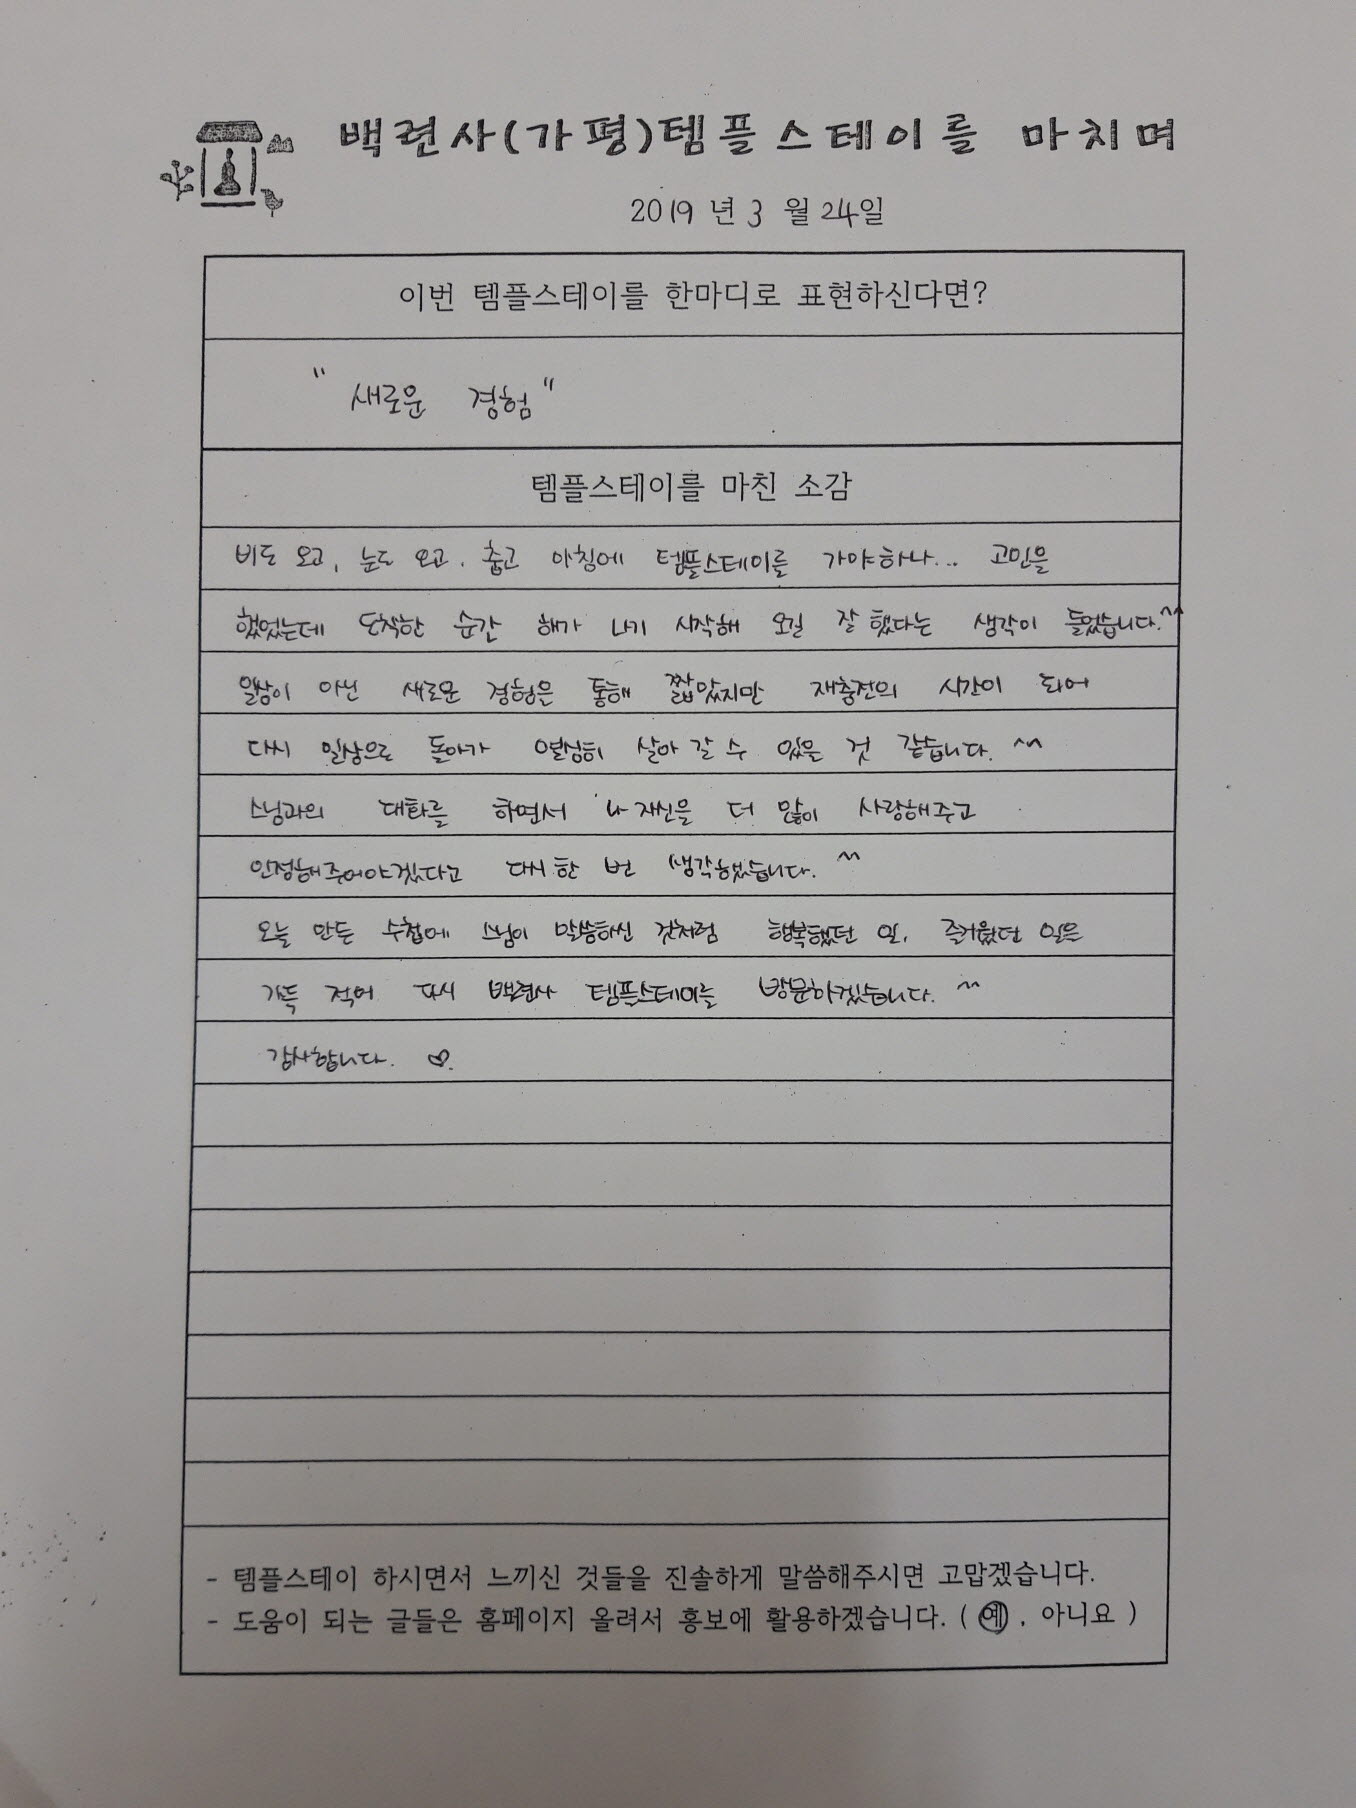 백련사(가평)템플스테이를 마치며
2019 년 3 월 24일
이번 템플스테이를 한마디로 표현하신다면?
" 새로운 경험 "
템플스테이를 마친 소감
비도 오고, 눈도 오고, 춥고 아침에 템플스테이를 가야하나... 고민을
했었는데 도착한 순간 해가 나기 시작해 오길 잘 했다는 생각이 들었습니다.^^
일상이 아닌 새로운 경험은 통해 짧았지만 재충전의 시간이 되어
다시 일상으로 돌아가 열심히 살아 갈 수 있을 것 같습니다. ^^
스님과의 대화를 하면서 나 자신을 더 많이 사랑해주고
인정해주어야겠다고 다시 한 번 생각했습니다. ^^
오늘 만든 수첩에 스님이 말씀하신 것처럼 행복했던 일, 즐거웠던 일은
가득 적어 다시 백련사 템플스테이를 방문하겠습니다. ^^
감사합니다. ♡.
- 템플스테이 하시면서 느끼신 것들을 진솔하게 말씀해주시면 고맙겠습니다.
- 도움이 되는 글들은 홈페이지 올려서 홍보에 활용하겠습니다. ( 예 , 아니요 )